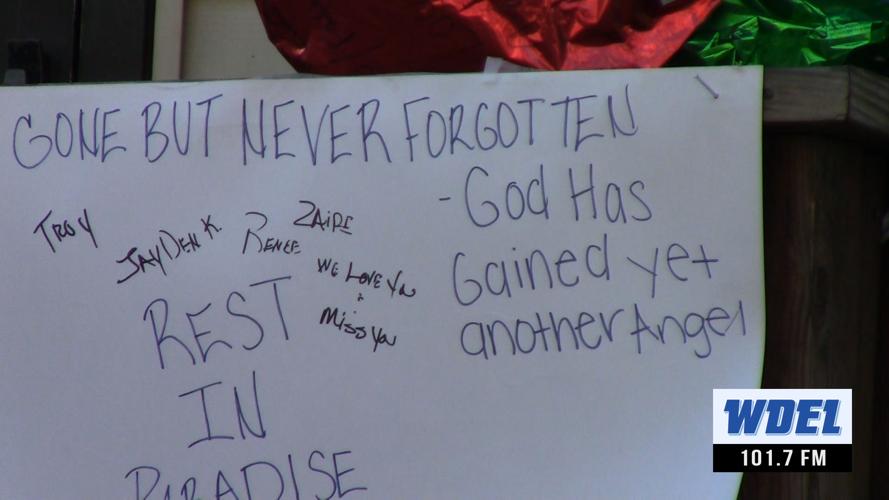 GONE BUT NEVER FORGOTTEN
-God Has
Gained yet
another Angel
TROY
JAYDEN K.
RENEE
ZAIRE
WE LOVE YOU
&
MISS YOU
REST
IN
PARADISE
WDEL
101.7 FM